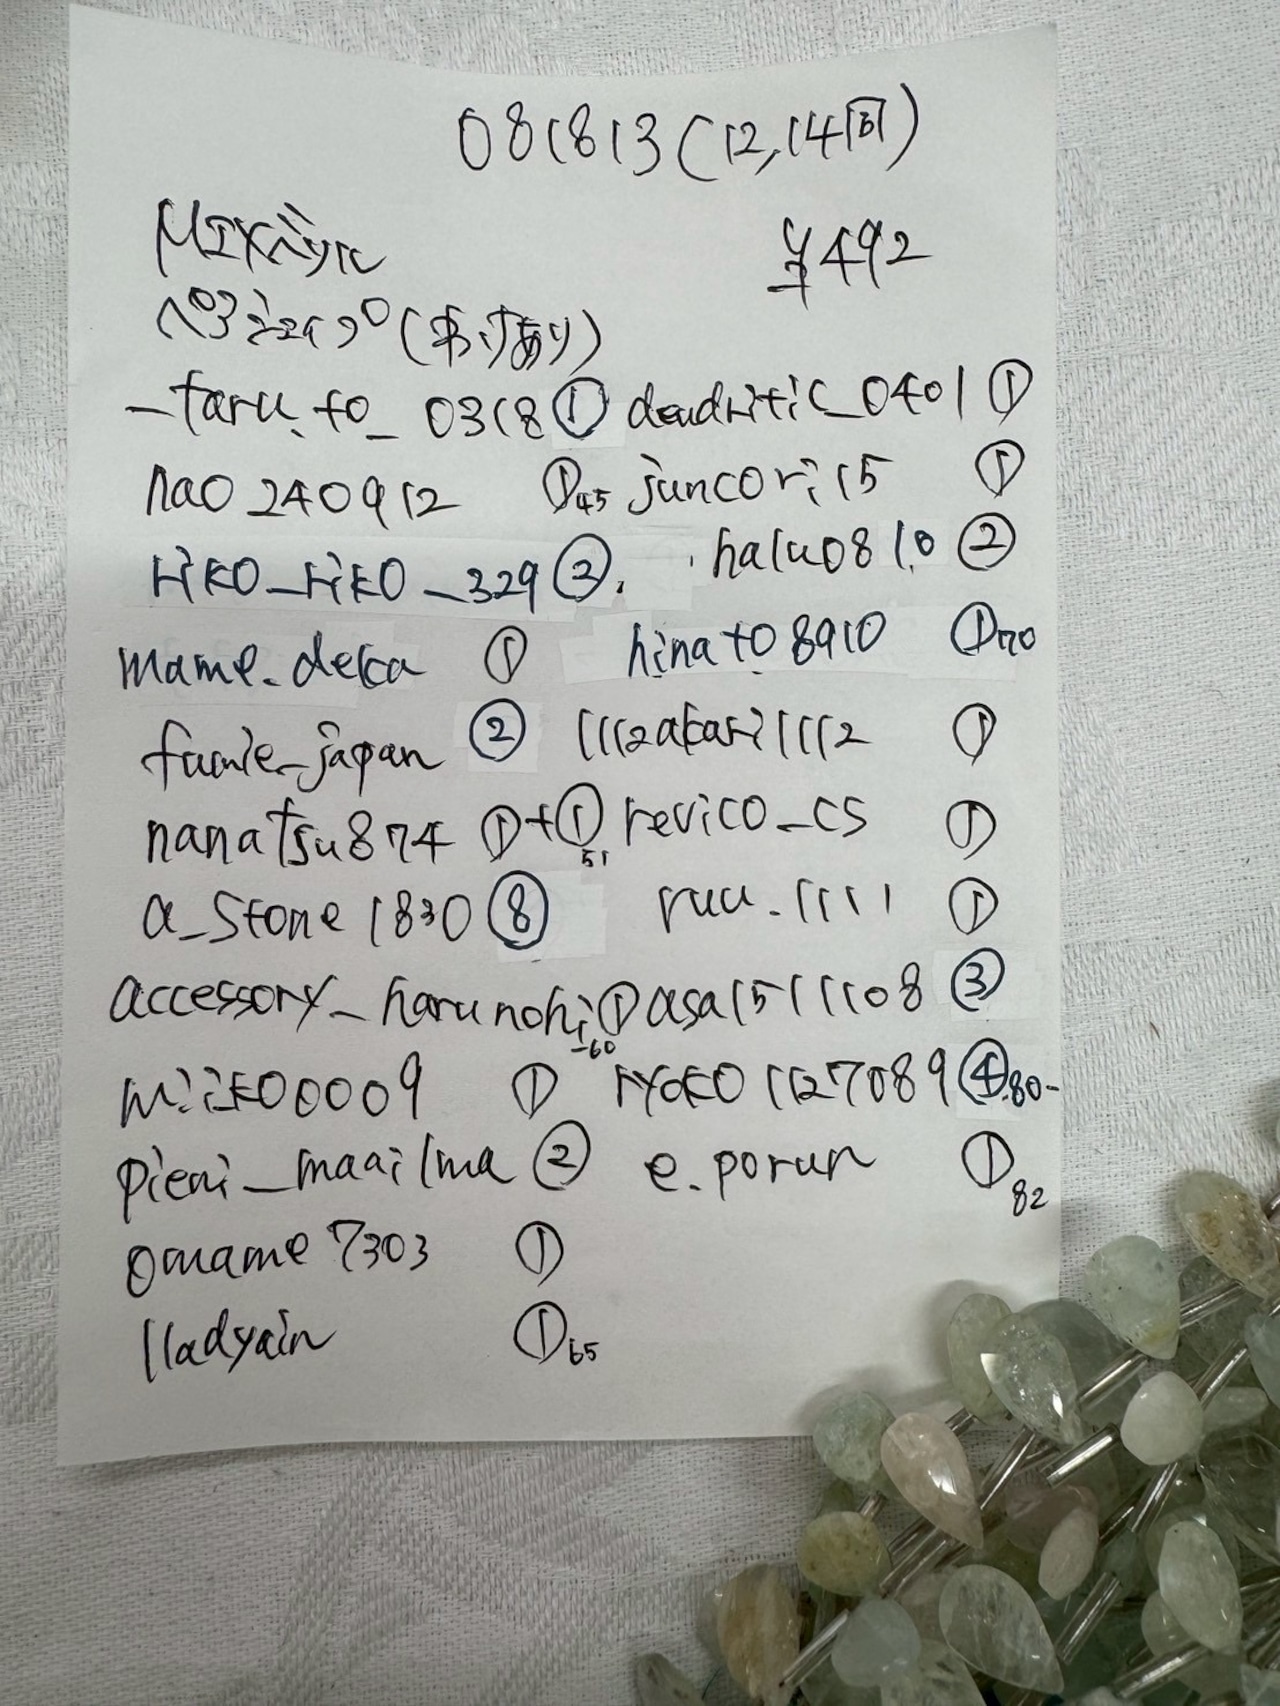 081813(12,14回)
MIXベリル
¥492
ペアシェイプ(訳あり)
_taru.to_0318 ① dendritic_0401 ①
nao240912 ①45 juncori15 ①
riko_riko_329 ② halu0810 ②
mame.deka ① hinato8910 ①70
fumie_japan ② 1112akari1112 ①
nanatsu874 ①+①51 revico_cs ①
a_stone1830 ⑧ ruu.1111 ①
accessory_harunohi ①-60 asa15111108 ③
miiko0009 ① ryoko1127089 ④80-
pieni_maailma ② e.porun ①82
omame7303 ①
lladyain ①65